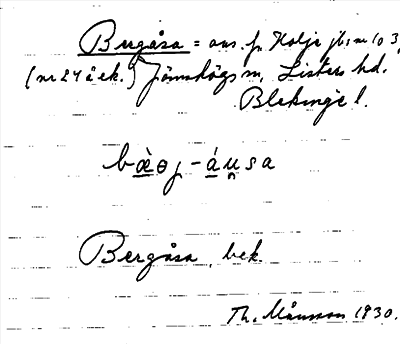 Bergåsa = ans. fr. Holje jb: nr 10 3,
(nr 24 å ek.) Jämshögs sn, Listers hd.
Blekinge l.
bæ̀ɵɼ-áu̯sa
Bergåsa, bek.
Th. Månsson 1930.